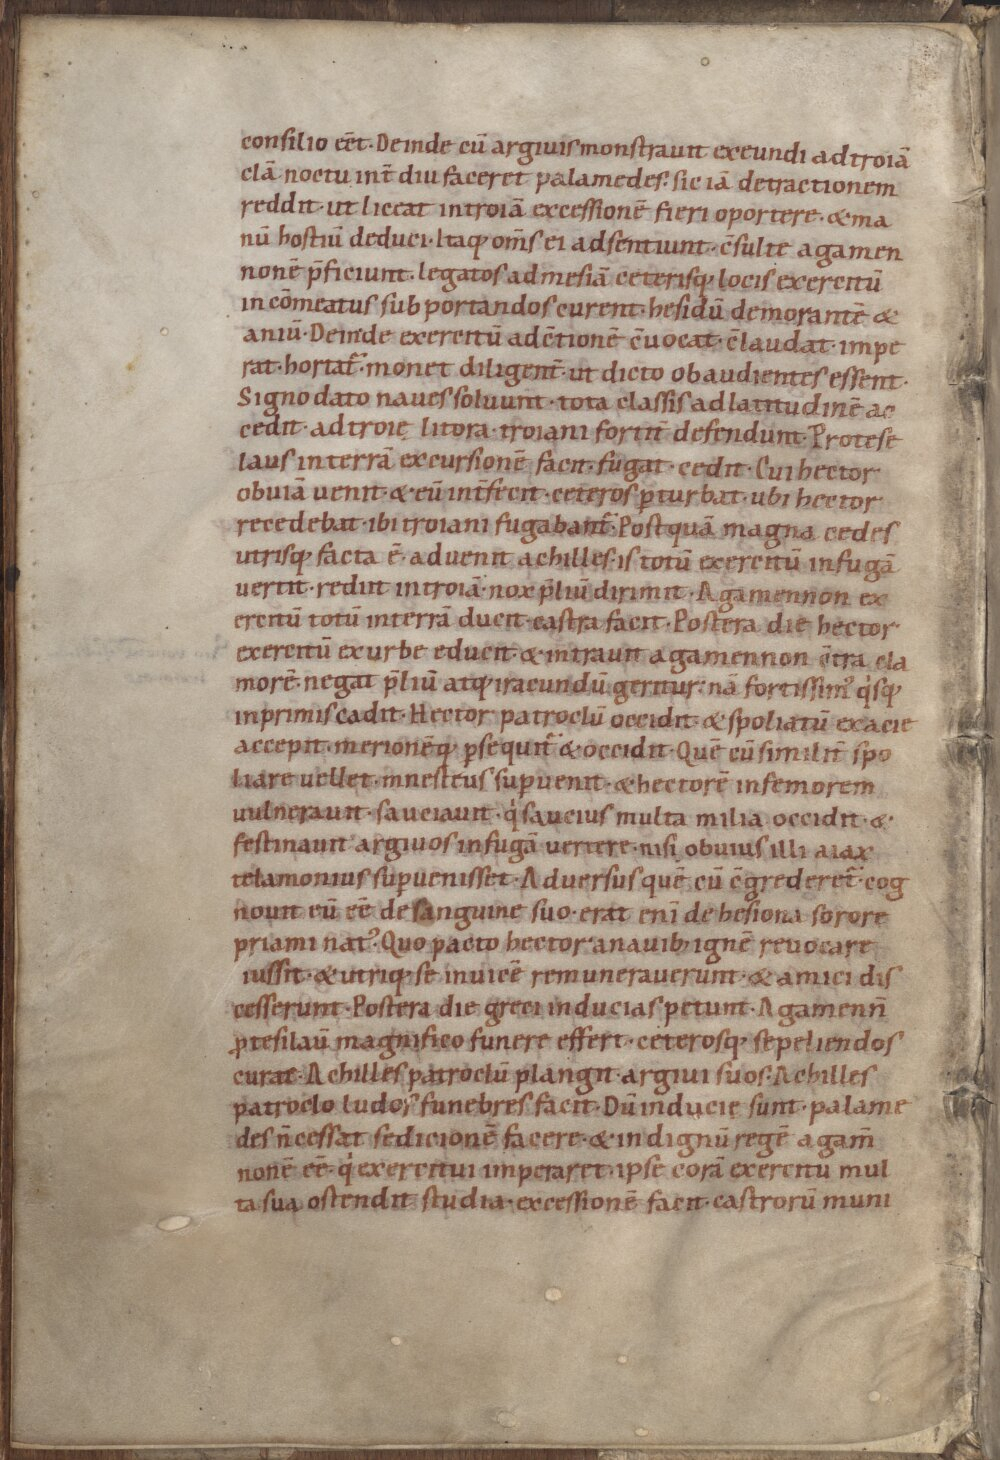 consilio eēt. Deinde cū argiuis monstrauit exeundi ad troiā
clā noctu int̄ diu faceret palamedes. sic iā detractionem
reddit. ut liceat in troiā excessionē fieri oportere. & ma
nū hostiū deduci. Itaq; om̄s ei adsentiunt. c̄sulte agamen
nonē p̄ficiunt. legatos ad mesiā ceterisq; locis exercitū
in cōmeatus subportandos curent. hesidū demorantē &
aniū. Deinde exercitū ad c̄tionē c̄uocat. c̄laudat. impe
rat. hortat̄. monet diligent̄. ut dicto obaudientes essent.
Signo dato naues soluunt. tota classis ad latitudinē ac
cedit. ad troię litora. troiani fortit̄ defendunt. Protese
laus in terrā excursionē facit. fugat. cedit. Cui hector
obuiā uenit. & eū int̄fecit. ceteros p̱turbat. ubi hector
recedebat. ibi troiani fugabant̄. Postquā magna cedes
utrisq; facta ē. aduenit achilles. is totū exercitū in fugā
uertit. rediit in troiā. nox p̄liū dirimit. Agamennon ex
ercitū totū in terrā ducit. castra facit. Postera die hector
exercitū ex urbe educit. & intrauit agamennon c̄tra cla
morē. negat p̄liū atq; iracundū geritur. nā fortissim᾿ q͛sq;
in primis cadit. Hector patroclū occidit. & spoliatū ex acie
accepit. merionēq; p̱sequit̄ & occidit. Quē cū similit̄ spo
liare uellet. mnesteus sup̱uenit. & hectorē in femorem
uulnerauit. sauciauit. q͛ saucius multa milia occidit. &
festinauit argiuos in fugā uertere. nisi obuius illi aiax
telamonius sup̱uenisset. Aduersus quē cū c̄grederet̄. cog
nouit eū eē de sanguine suo. erat enī de hesiona sorore
priami nat᾿. Quo pacto hector a nauib; ignē reuocare
iussit. & utriq; se inuicē remunerauerunt. & amici dis
cesserunt. Postera die greci inducias petunt. Agamenn̄
p̱tesilaū magnifico funere effert. ceterosq; sepeliendos
curat. Achilles patroclū plangit. argiui suos. Achilles
patroclo ludos funebres facit. Dū inducie sunt. palame
des n̄ cessat sedicionē facere. & indignū regē agam̄
nonē eē. q͛ exercitui imperaret. ipse corā exercitu mul
ta sua ostendit studia. excessionē facit. castrorū muni